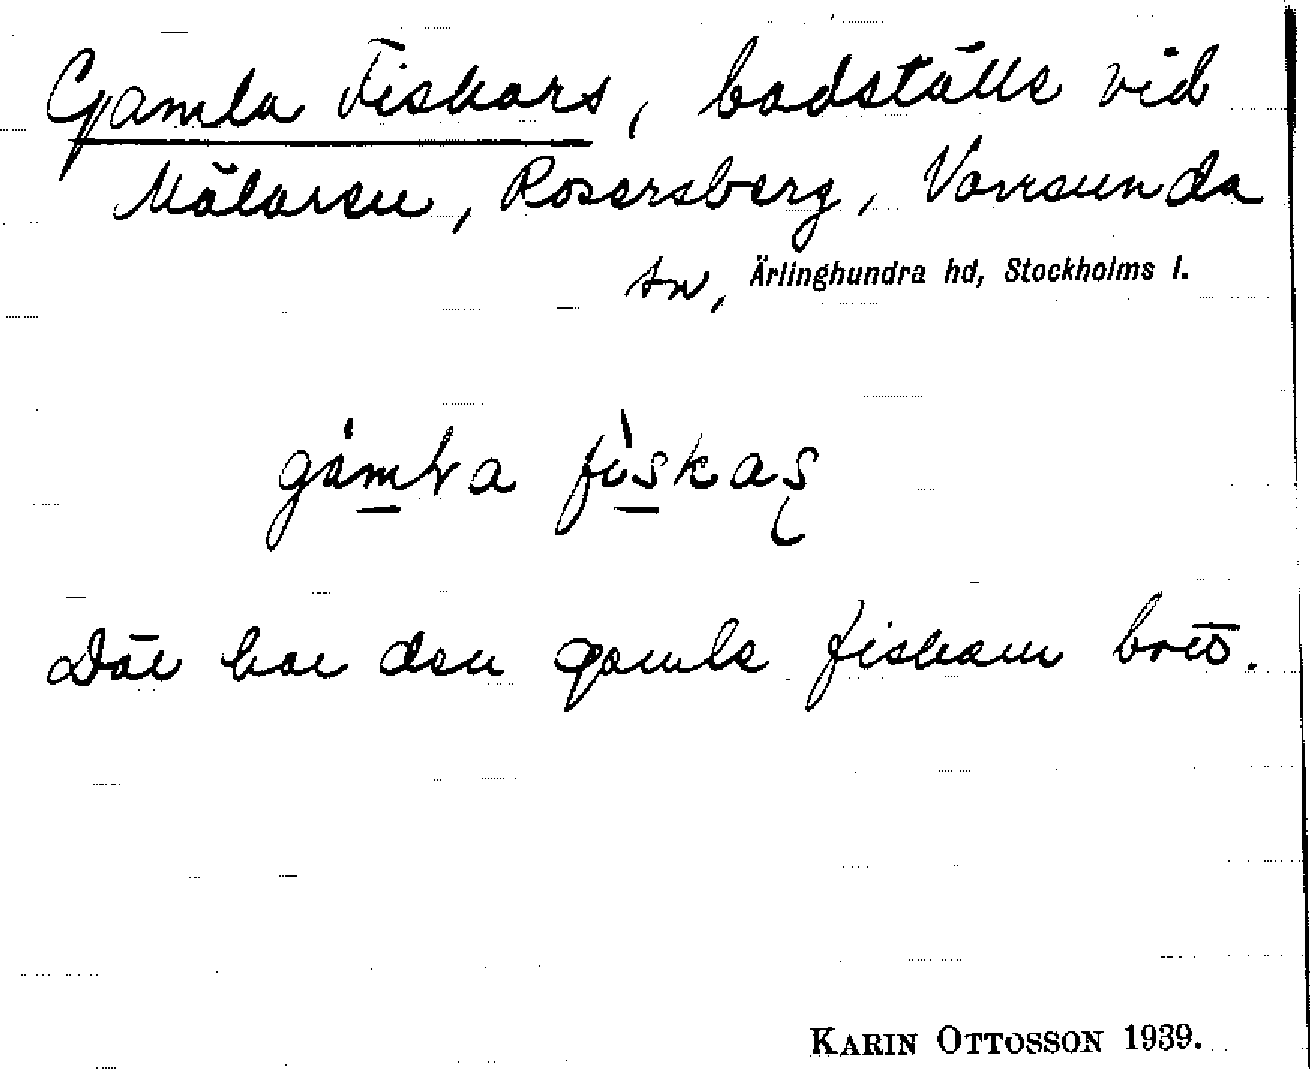 Gamla Fiskars, badställe vid
Mälaren, Rosersberg, Vansunda
sn, Ärlinghundra hd, Stockholms l.
gàmla fìskaʂ
Där har den gamle fiskarn bott.
KARIN OTTOSSON 1939.